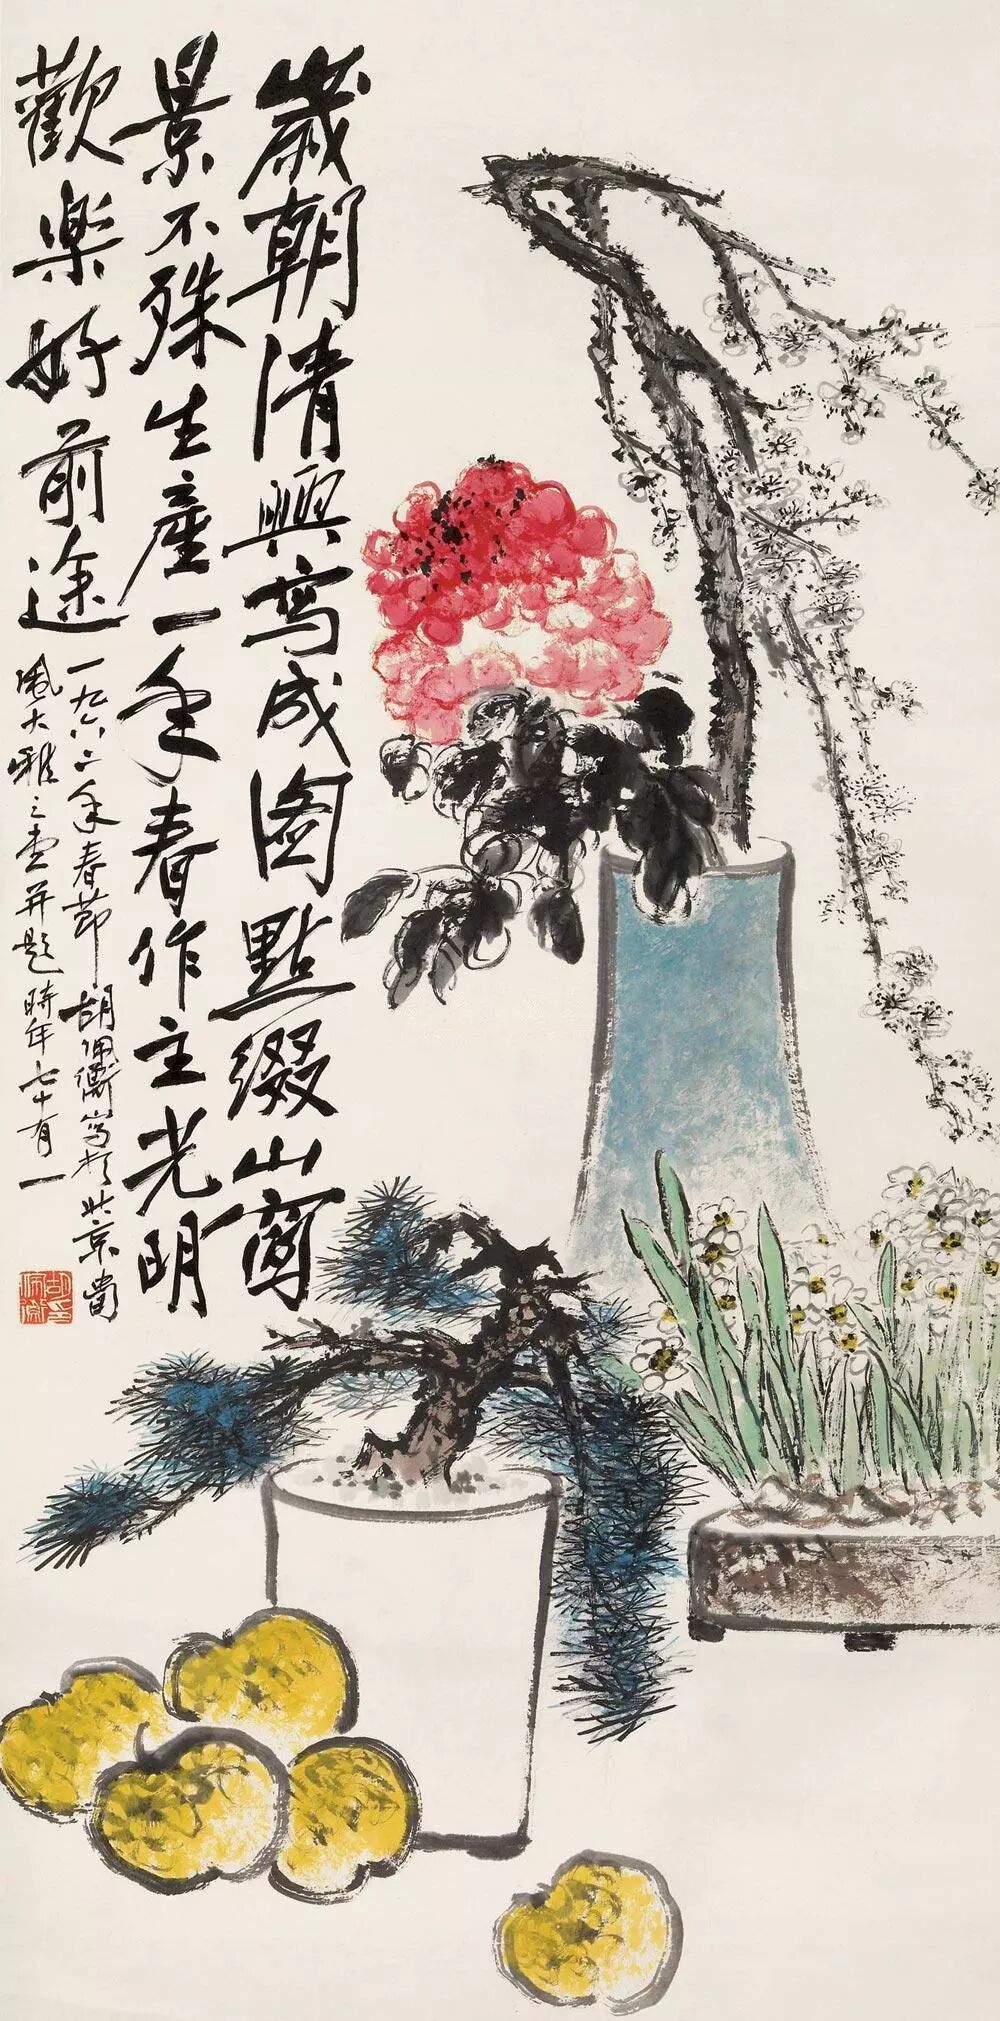 歲朝清興寫成圖點綴山窗
景不殊生產一年春作主光明
歡樂好前途
一九六二年春節胡佩衡寫於北京留
風大雅之堂并題時年七十有一
胡佩衡印